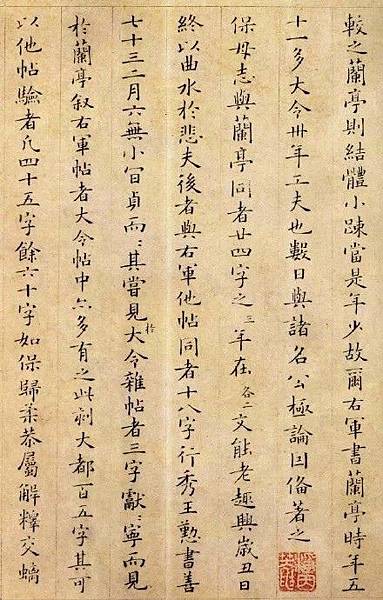 較之蘭亭則結體小踈當是年少故爾右軍書蘭亭時年五
十一多大令卅年工夫也數日與諸名公極論因備著之
保母志與蘭亭同者廿四字之三年在各二文能老趣興歲丑日
終以曲水於悲夫後者與右軍他帖同者十八字行秀王懃書善
七十三二月六無小貞而〻其嘗見於大令雜帖者三字獻〻寧而見
於蘭亭叙右軍帖者大令帖中亦多有之此刻大都百五字其可
以他帖驗者凡四十五字餘六十字如保歸柔恭屬解釋交螭